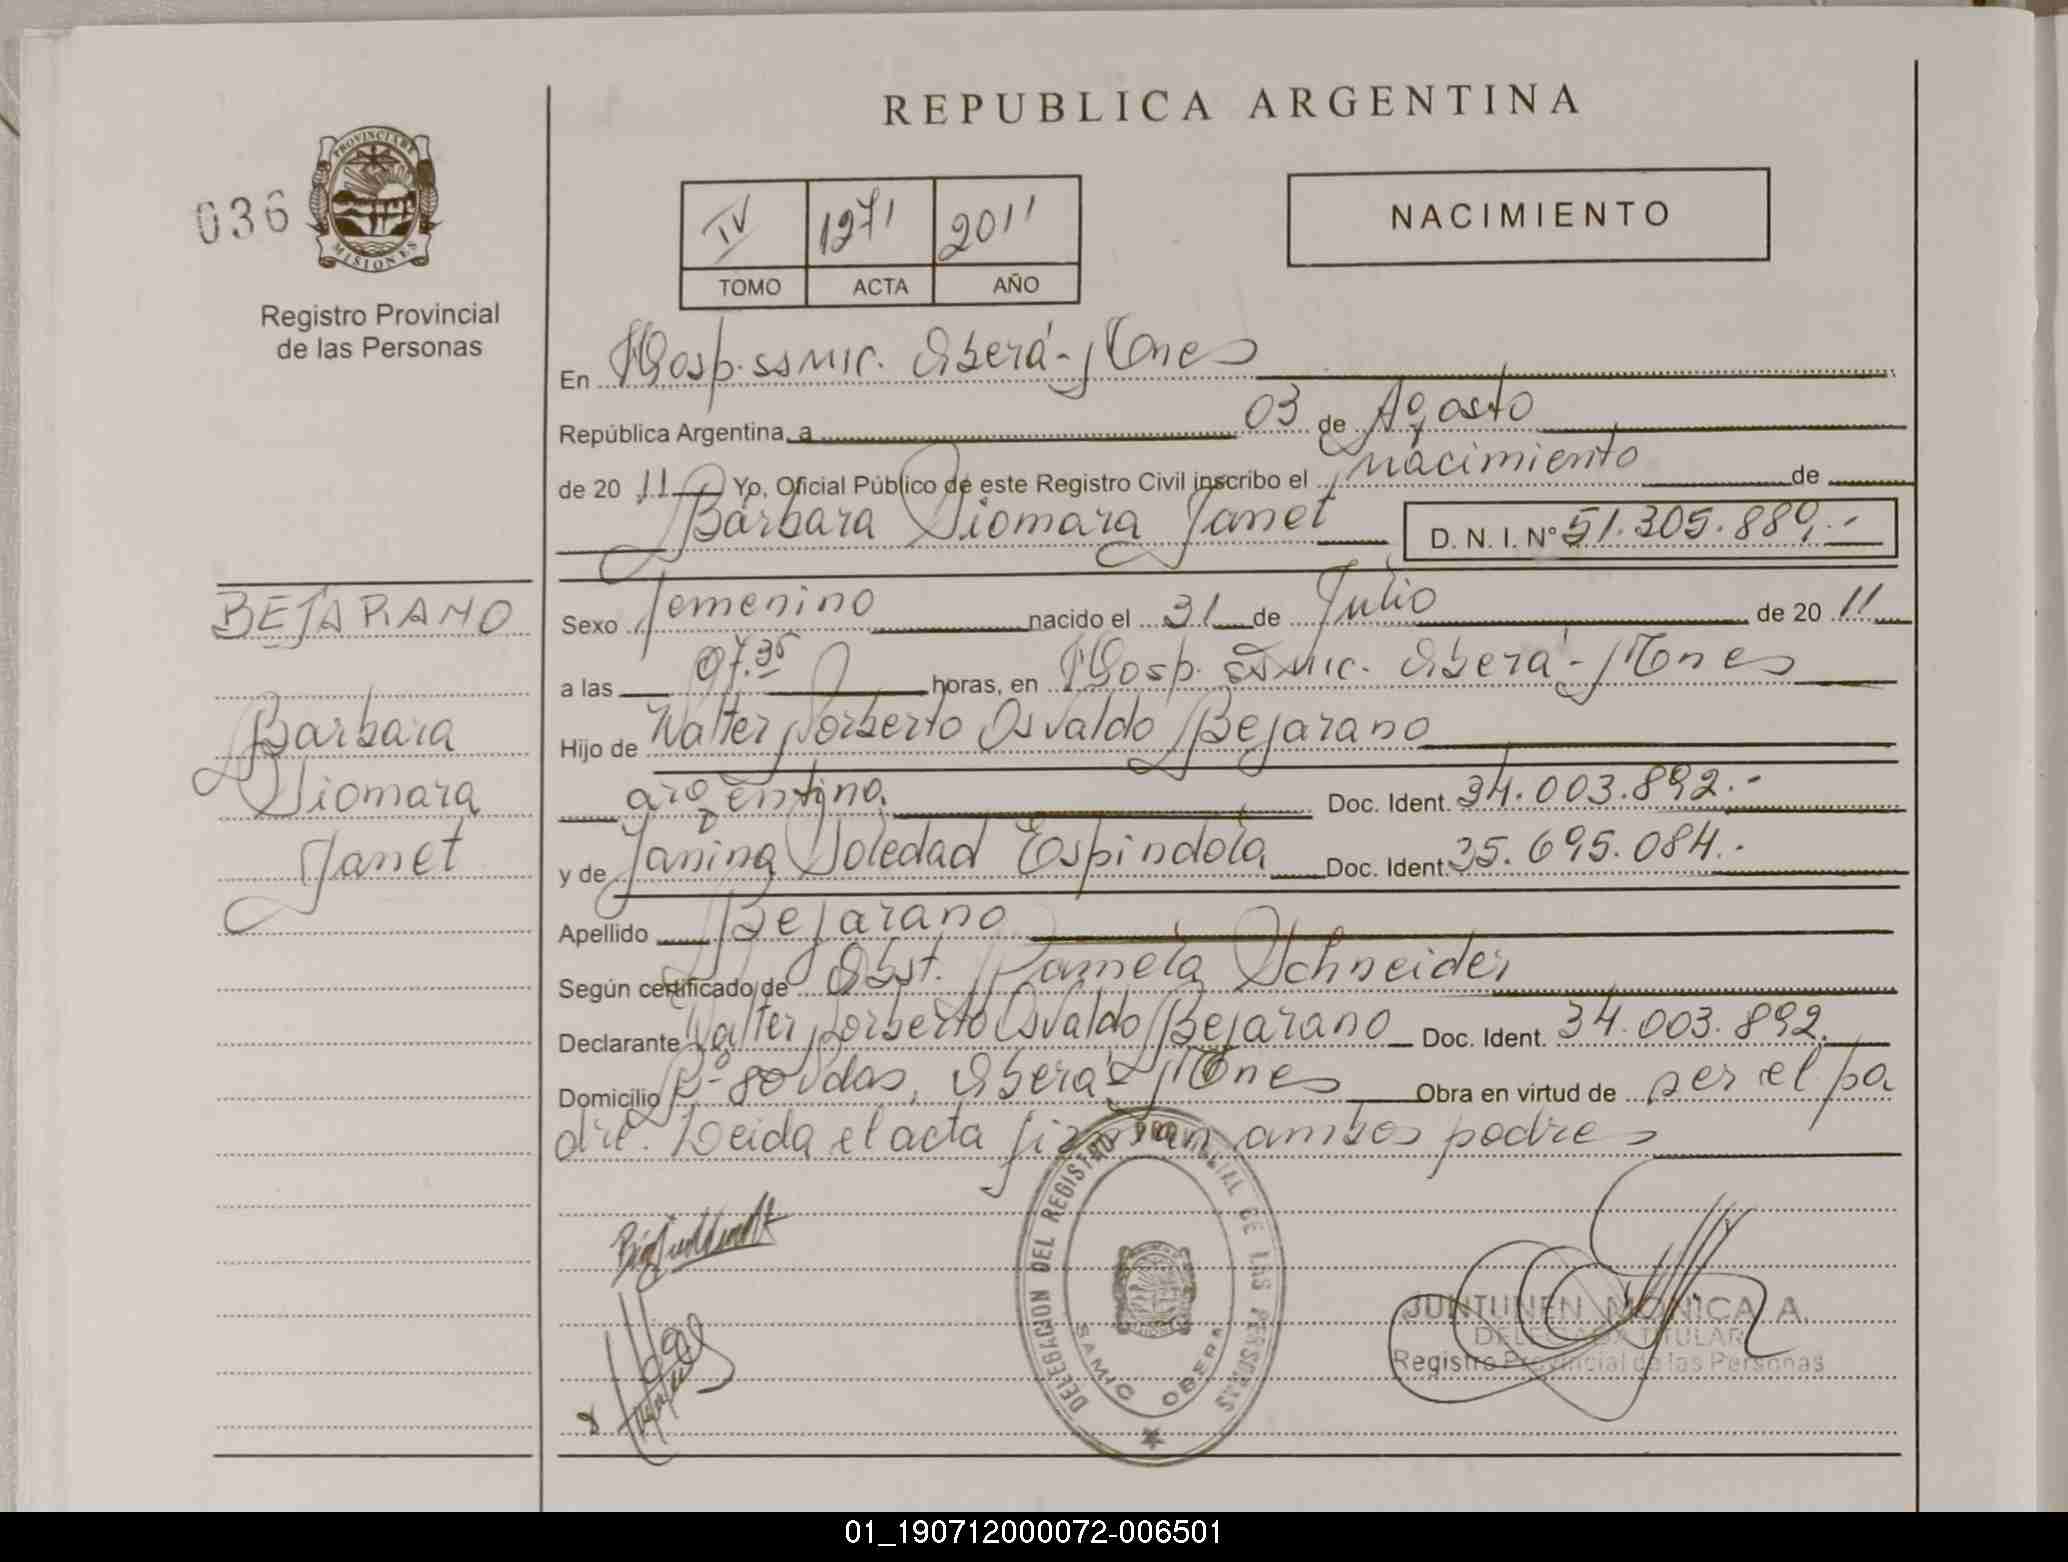 REPUBLICA ARGENTINA
PROVINCIA DE
MISIONES
036
Registro Provincial
de las Personas
IV 1271 2011
TOMO ACTA AÑO
NACIMIENTO
En Hosp. SSMIC. Oberá - Mnes
República Argentina, a 03 de Agosto
de 20 11 Yo, Oficial Público de este Registro Civil inscribo el nacimiento de
Bárbara Siomara Janet D. N. I. Nº 51.305.889.-
BEJARANO
Barbara
Siomara
Janet
Sexo femenino nacido el 31 de Julio de 20 11
a las 07.35 horas, en Hosp. SSMIC. Oberá - Mnes
Hijo de Walter Norberto Osvaldo Bejarano
argentino. Doc. Ident. 34.003.892.-
y de Janina Soledad Espindola Doc. Ident. 35.695.084.-
Apellido Bejarano
Según certificado de Obst. Pamela Schneider
Declarante Walter Norberto Osvaldo Bejarano Doc. Ident. 34.003.892.
Domicilio Bº 80 Vdas, Oberá - Mnes Obra en virtud de ser el pa
dre. Leida el acta firman ambos padres
DELEGACION DEL REGISTRO PROVINCIAL DE LAS PERSONAS
SAMIC OBERA
JUNTUNEN MONICA A.
DELEGADA TITULAR
Registro Provincial de las Personas
01_190712000072-006501